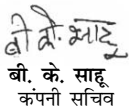 बी.के.साहू
बी. के. साहू
कंपनी सचिव